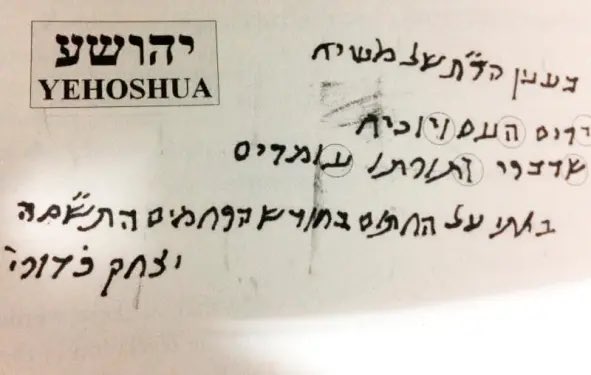 יהושע
YEHOSHUA
בענין הר״ת של משיח
ירים העם ויוכיח
שדברו ותורתו עומדים
באתי על החתום בחודש הרחמים התשס״ה
יצחק כדורי